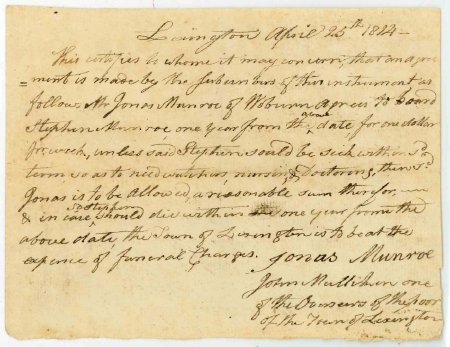 Lexington April 25th 1814 —
This certifies to whome it may concern, that an agree
=ment is made by the Subscribers of this instrument as
follow, Mr Jonas Munroe of Woburn agrees to board
Stephen Munroe, one year from the above date for one dollar
pr week, unless said Stephen sould be sick within sd
term so as to need watchers nursing & Doctoring, then sd
Jonas is to be allowed a reasonable sum therefor,
& in case sd Stephen should die within one year from the
above date, the Town of Lexington is to be at the
expence of funeral Charges. Jonas Munroe
John Mulliken one
of the Overseers of the poor
of the Town of Lexington